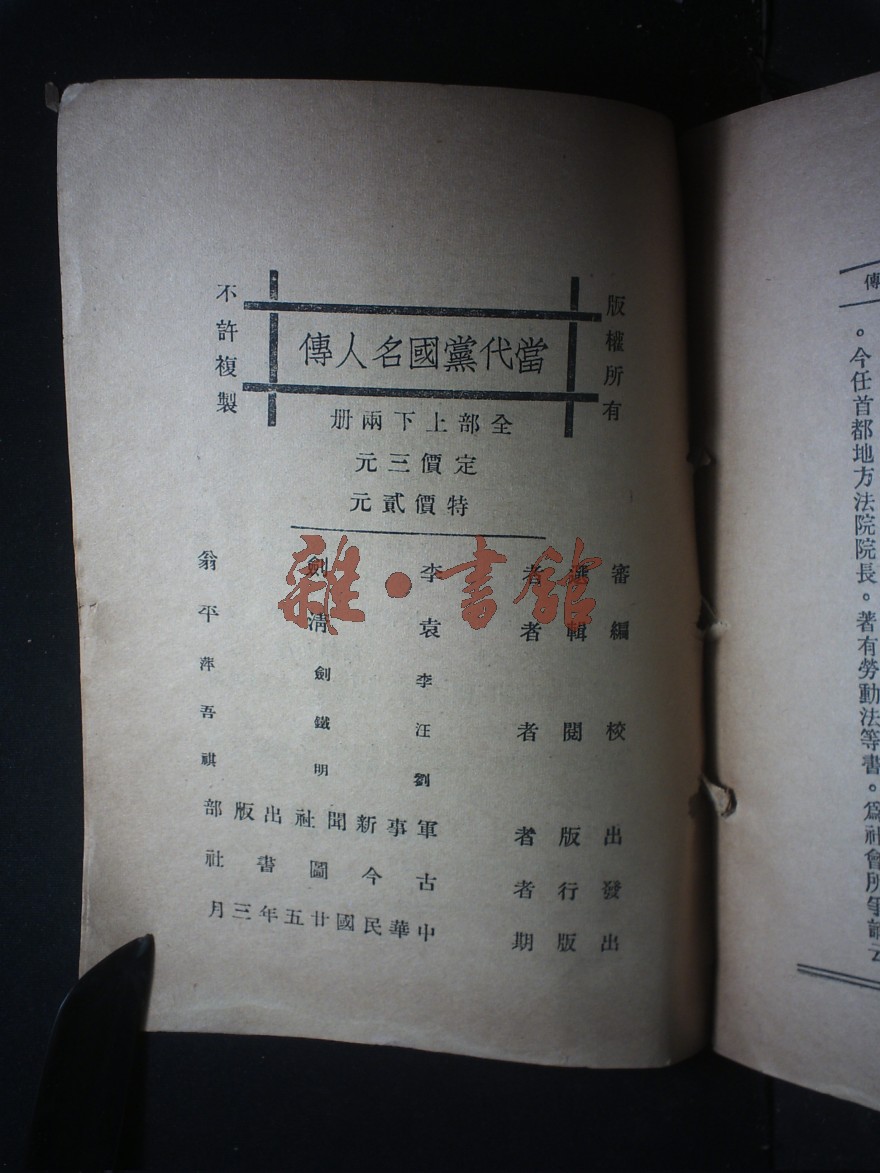 版權所有
不許複製
當代黨國名人傳
全部上下兩册
定價三元
特價貳元
審選者 李劍翁
編輯者 袁清平
校閱者 李劍萍
汪鐵吾
劉明祺
出版者 軍事新聞社出版部
發行者 古今圖書社
出版期 中華民國廿五年三月
雜·書館
傳
。今任首都地方法院院長。著有勞動法等書。爲社會所爭誦云